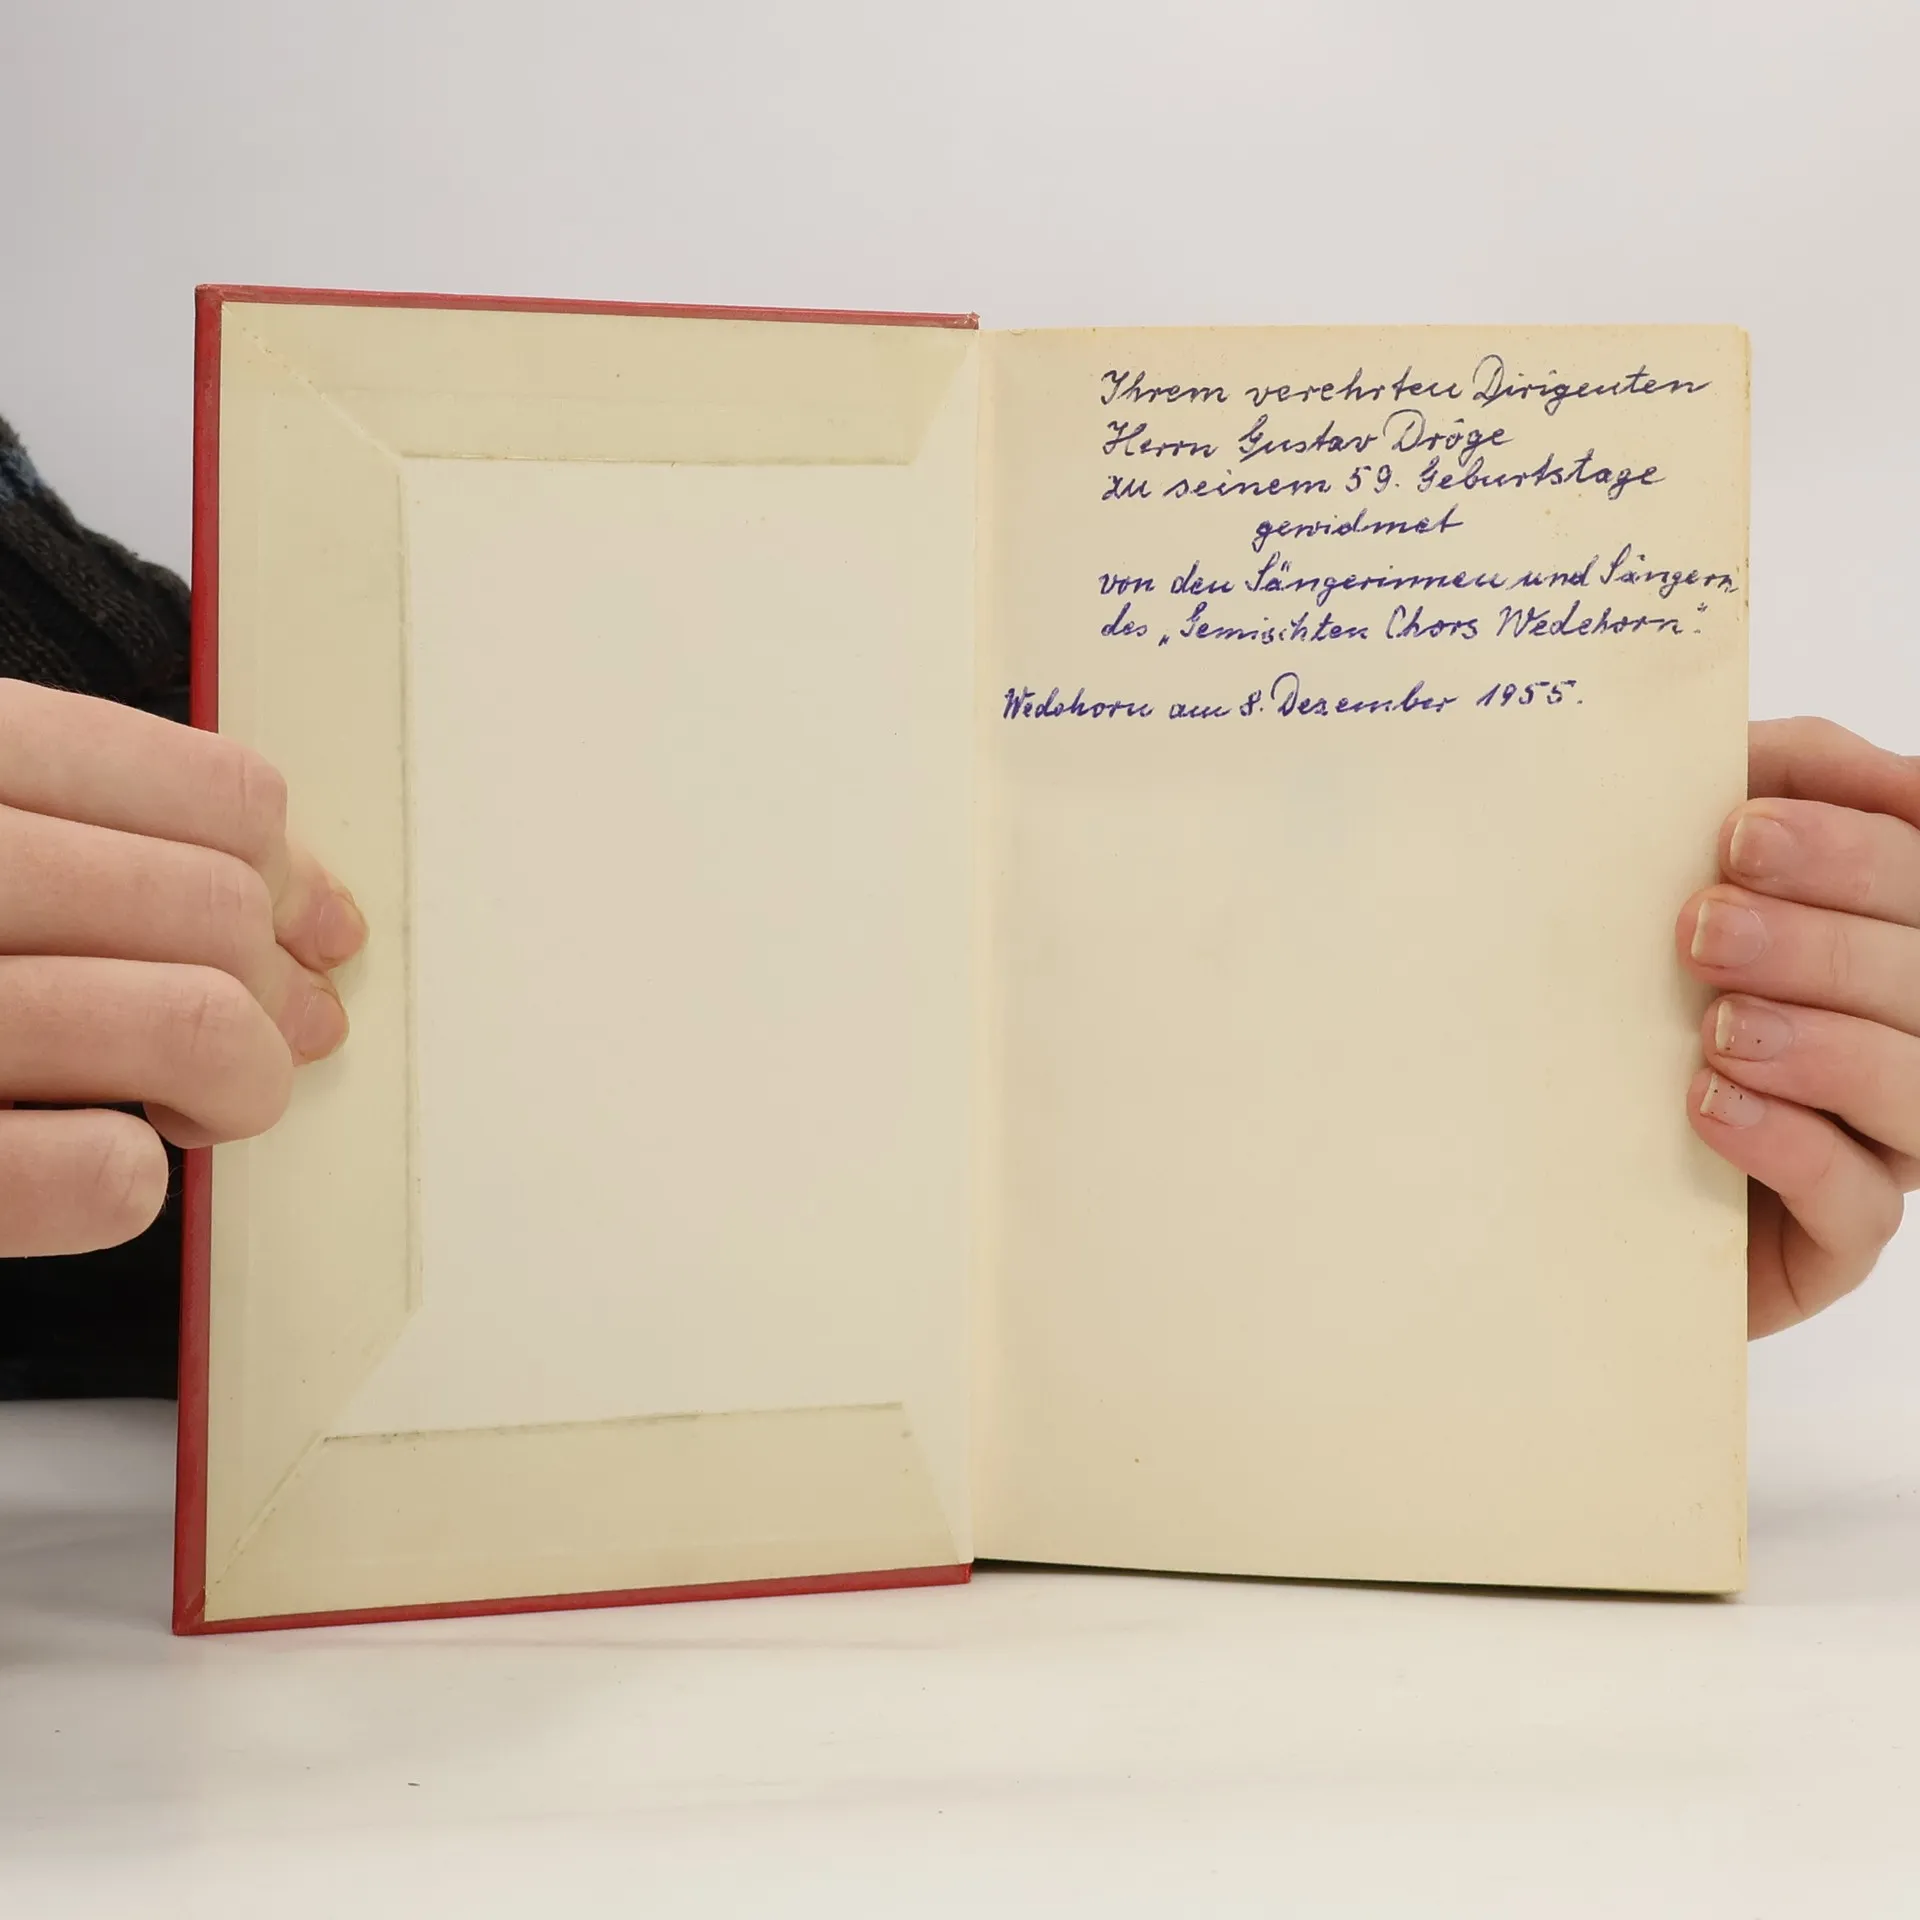 Ihrem verehrten Dirigenten
Herrn Gustav Dröge
zu seinem 59. Geburtstage
gewidmet
von den Sängerinnen und Sängern
des „Gemischten Chors Wedehorn".
Wedehorn am 8. Dezember 1955.